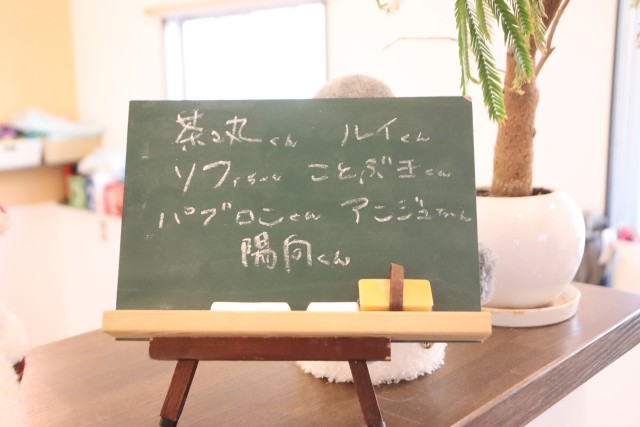 茶々丸くん ルイくん
ソフィちゃん ことぶきくん
パブロンくん アンジュちゃん
陽向くん